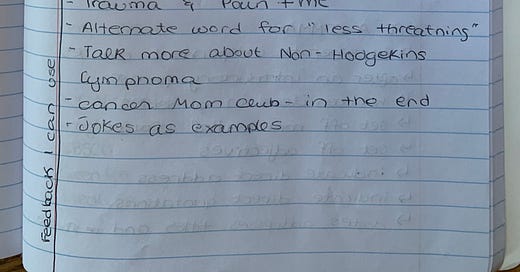 - Trauma & Pain + me
- Alternate word for "less threatning"
- Talk more about Non-Hodgekins
Lymphoma
- cancer Mom club - in the end
- Jokes as examples
Feedback I can use